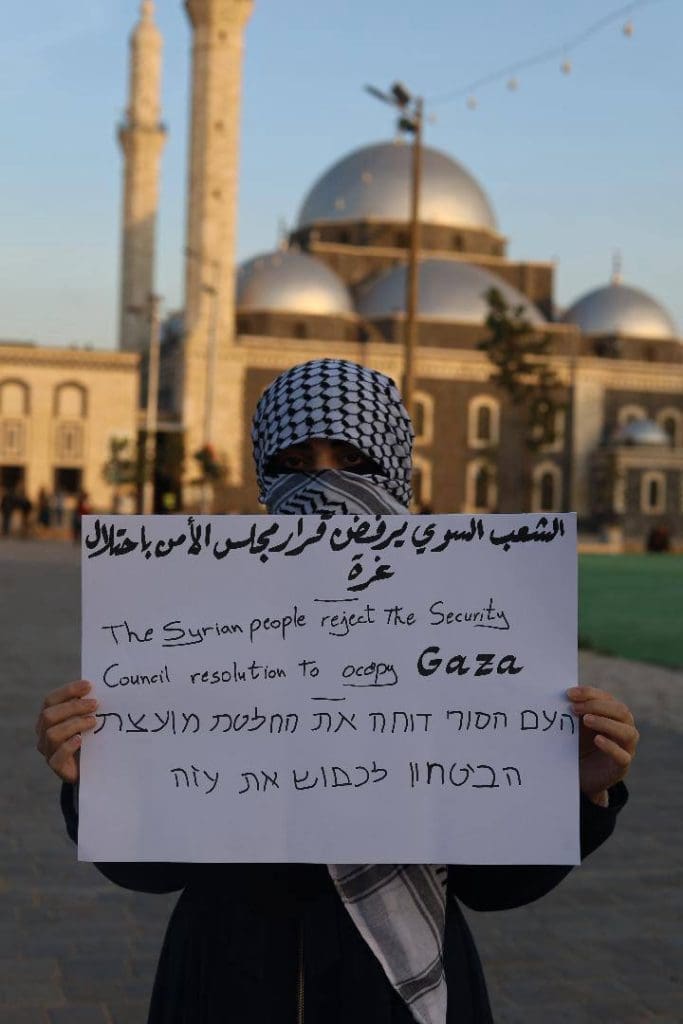 الشعب السوي يرفض قرار مجلس الأمن باحتلال
غزة
The Syrian people reject The Security
Council resolution to occupy Gaza
העם הסורי דוחה את החלטת מועצת
הביטחון לכבוש את עזה